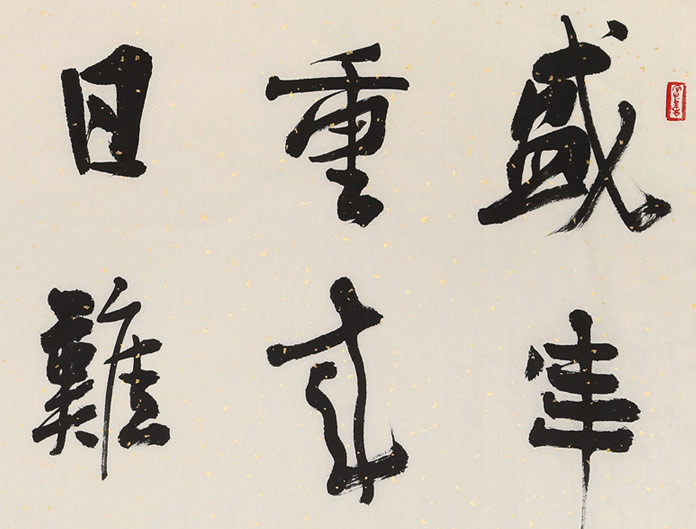 盛年
重来
日難